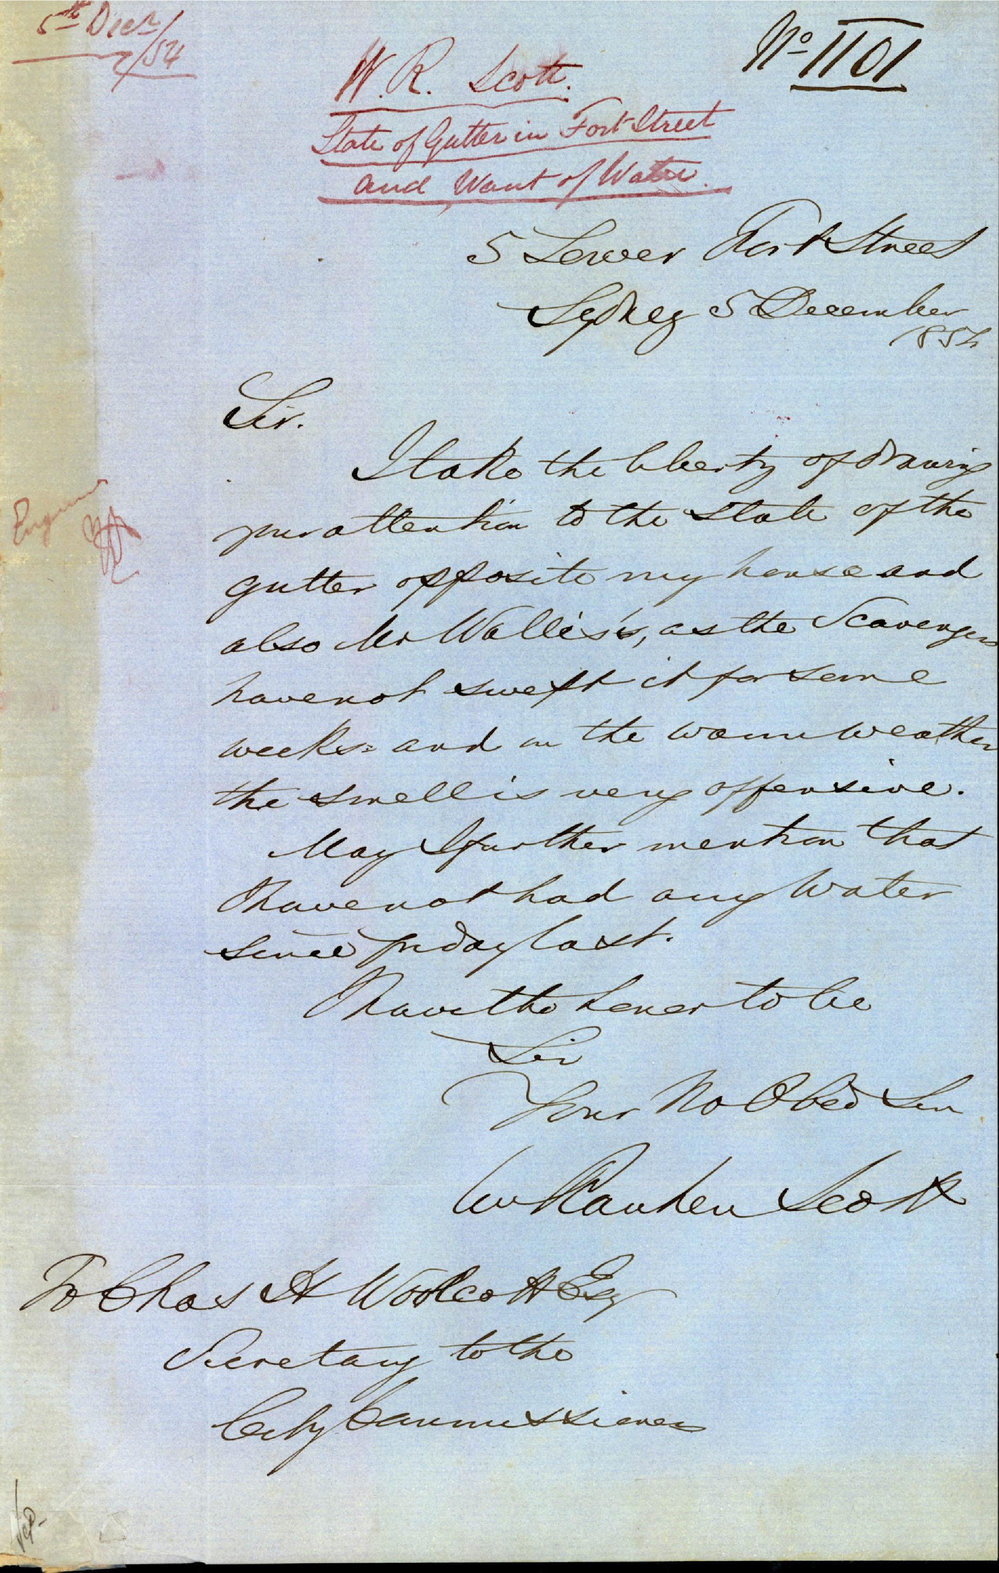 5th Decr/54
No 1101
W. R. Scott.
State of Gutter in Fort Street
and Want of Water.
5 Lower Fort Street
Sydney 5 December
1854
Sir.
I take the liberty of drawing
your attention to the state of the
gutter opposite my house and
also Mr Wallis's, as the Scavengers
have not swept it for some
weeks = and in the warm weather
the smell is very offensive.
May I further mention that
I have not had any Water
since friday last.
I have the honor to be
Sir
Your Mo Obed Ser
Wm Rauken Scott
To Chas H Woolcott Esq
Secretary to the
City Commissioners